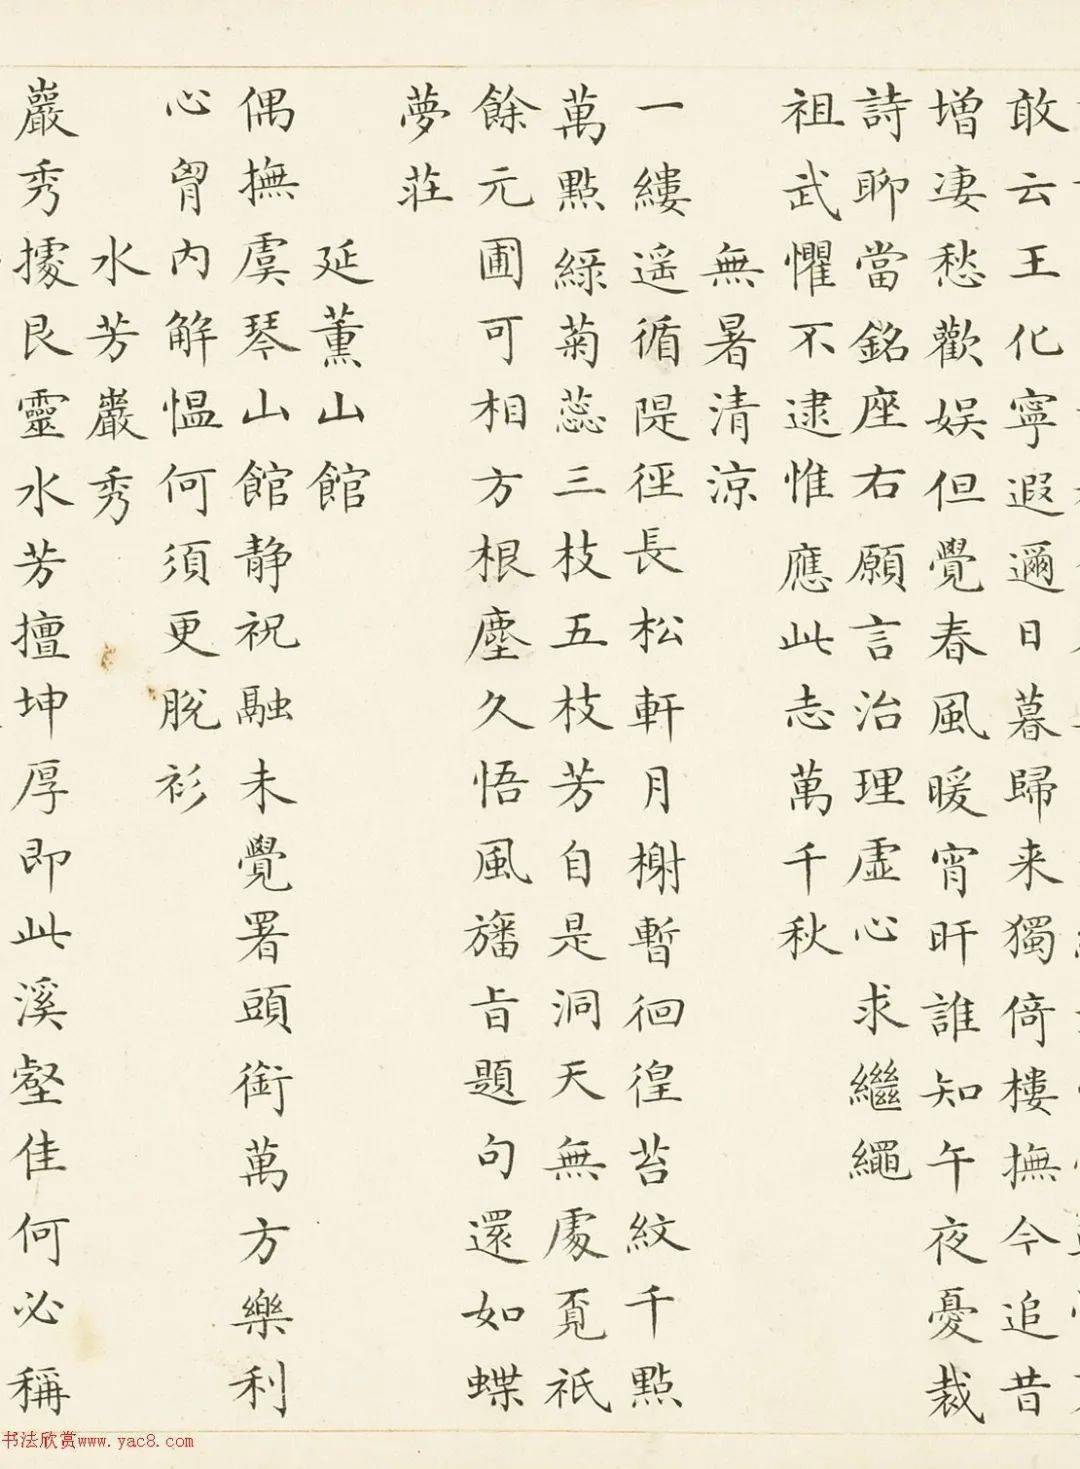 敢云王化寧遐邇日暮歸来獨倚樓撫今追昔
增凄愁歡娱但覺春風暖宵旰誰知午夜憂裁
詩聊當銘座右願言治理虚心求繼繩
祖武懼不逮惟應此志萬千秋
無暑清涼
一縷遥循隄徑長松軒月榭暫徊徨苔紋千點
萬點綠菊蕊三枝五枝芳自是洞天無處覓祇
餘元圃可相方根塵久悟風旛旨題句還如蝶
夢莊
延薰山館
偶撫虞琴山館静祝融未覺署頭銜萬方樂利
心胷内解愠何須更脱衫
水芳巖秀
巖秀據艮靈水芳擅坤厚即此溪壑佳何必稱
书法欣赏www.yac8.com